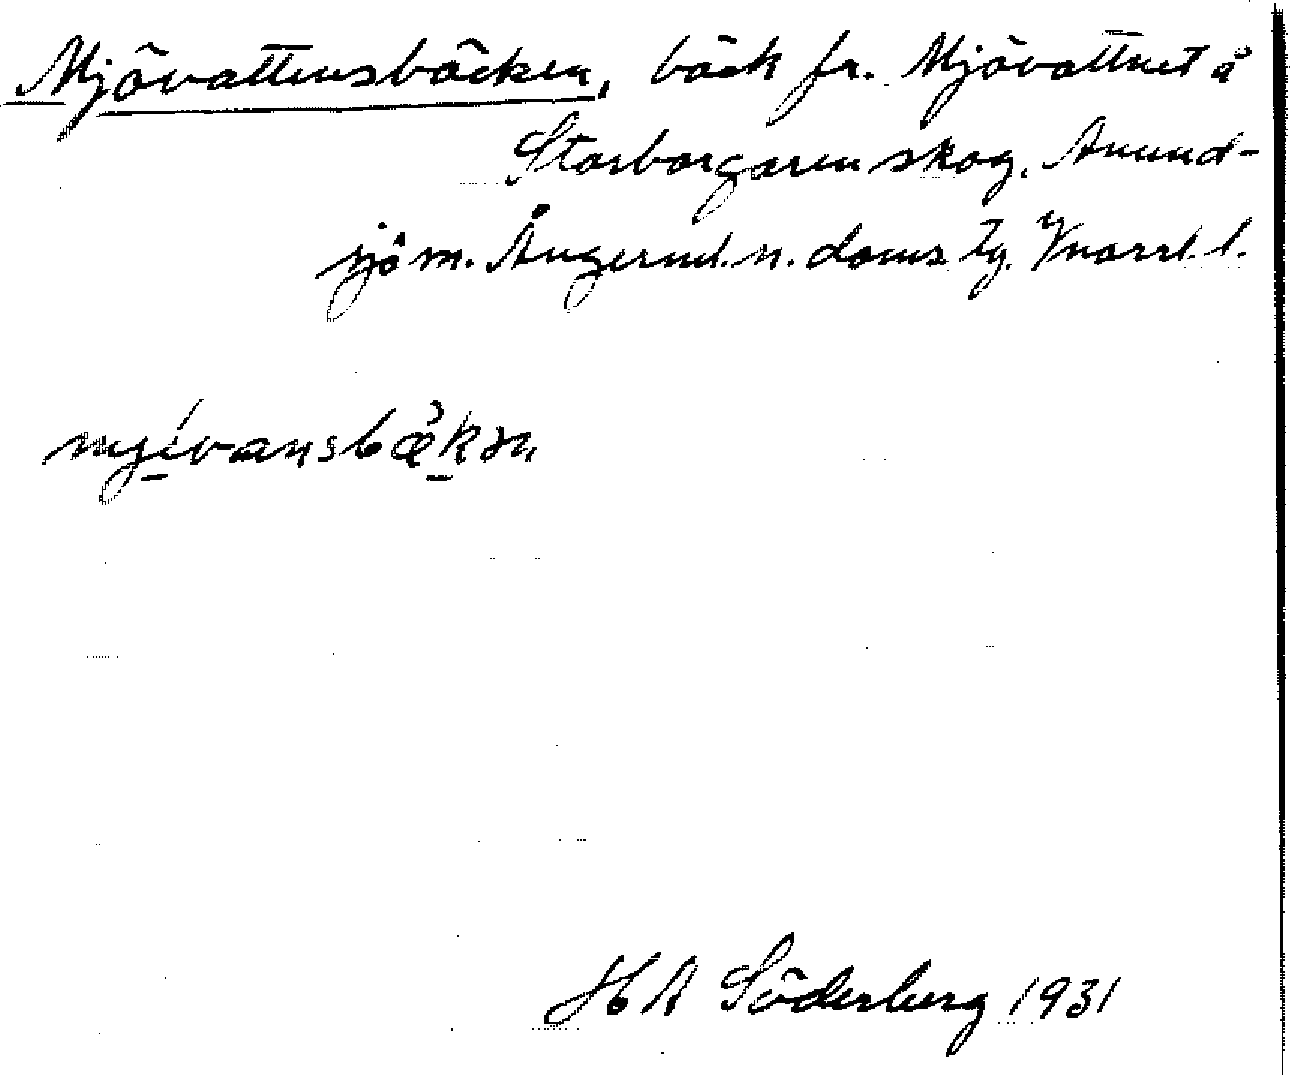 Mjövattensbäcken, bäck fr. Mjövattnet å
Storborgaren skog. Anund-
sjö sn. Ångerml. n. doms. tg. Vnorrl. l.
H A Söderberg 1931